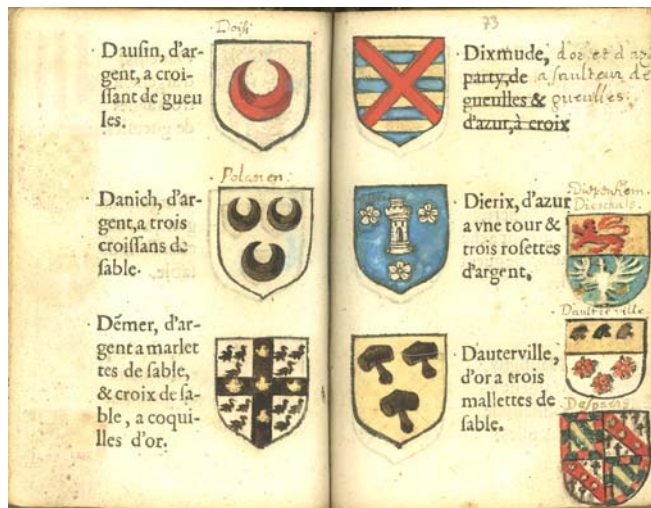 Doisi
Dausin, d'ar-
gent, a croi-
ssant de gueu
les.
Polanen:
Danich, d'ar-
gent, a trois
croissans de
sable.
Démer, d'ar-
gent a marlet
tes de sable,
& croix de sa-
ble, a coquil-
lles d'or.
73
Dixmude, d'or et d'az
party, de a saulteur de
gueulles & gueulles.
d'azur, à croix
Dierix, d'azur
a vne tour &
trois rosettes
d'argent.
Diepenhem.
Dauterville,
d'or a trois
mallettes de
sable.
Dautreville.
Despars